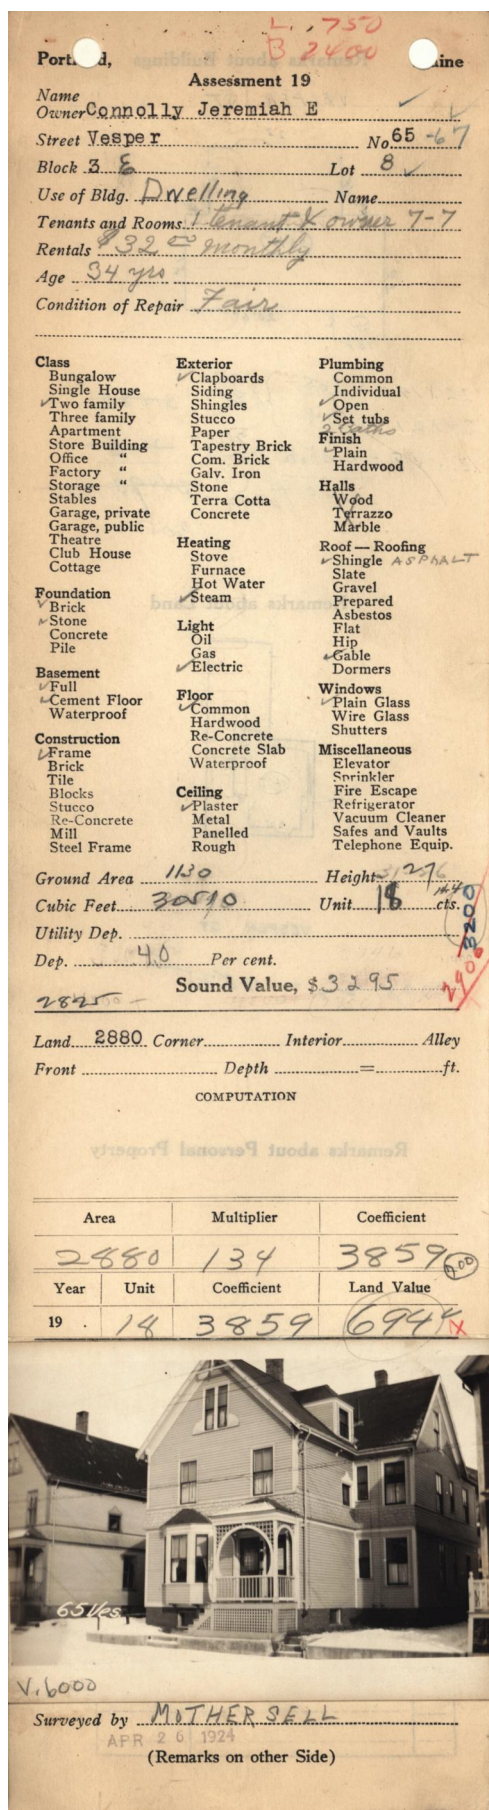 L. 750
B 2400
Portland, Maine
Assessment 19
Name
Owner Connolly Jeremiah E
Street Vesper No 65-67
Block 3 E Lot 8
Use of Bldg. Dwelling Name
Tenants and Rooms 1 tenant & owner 7-7
Rentals $32 00 monthly
Age 34 yrs
Condition of Repair Fair
Class
Bungalow
Single House
✓Two family
Three family
Apartment
Store Building
Office "
Factory "
Storage "
Stables
Garage, private
Garage, public
Theatre
Club House
Cottage
Foundation
✓Brick
✓Stone
Concrete
Pile
Basement
✓Full
✓Cement Floor
Waterproof
Construction
✓Frame
Brick
Tile
Blocks
Stucco
Re-Concrete
Mill
Steel Frame
Exterior
✓Clapboards
Siding
Shingles
Stucco
Paper
Tapestry Brick
Com. Brick
Galv. Iron
Stone
Terra Cotta
Concrete
Heating
Stove
Furnace
Hot Water
✓Steam
Light
Oil
Gas
✓Electric
Floor
✓Common
Hardwood
Re-Concrete
Concrete Slab
Waterproof
Ceiling
✓Plaster
Metal
Panelled
Rough
Plumbing
Common
Individual
✓Open
✓Set tubs
2 Baths
Finish
✓Plain
Hardwood
Halls
Wood
Terrazzo
Marble
Roof — Roofing
✓Shingle ASPHALT
Slate
Gravel
Prepared
Asbestos
Flat
Hip
✓Gable
Dormers
Windows
✓Plain Glass
Wire Glass
Shutters
Miscellaneous
Elevator
Sprinkler
Fire Escape
Refrigerator
Vacuum Cleaner
Safes and Vaults
Telephone Equip.
Ground Area 1130 Height 27
Cubic Feet 30510 Unit 18 cts.
3200
2906
Utility Dep.
Dep. 40 Per cent.
Sound Value, $3295
2825
Land 2880 Corner Interior Alley
Front Depth = ft.
COMPUTATION
Area Multiplier Coefficient
2880 134 3859
Year Unit Coefficient Land Value
19 . 18 3859 694
65 Ves
V. 6000
Surveyed by MOTHERSELL
APR 26 1924
(Remarks on other Side)